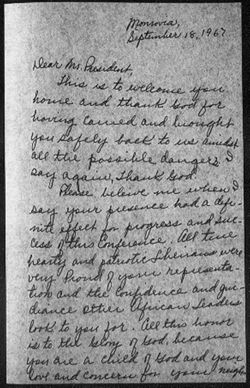 Monrovia,
September 18, 1967
Dear Mr. President,
This is to welcome you
home and thank God for
having carried and brought
you safely back to us amidst
all the possible dangers. I
say again, thank God.
Please believe me when I
say your presence had a defi-
nite effect for progress and suc-
cess of this Conference. All true
hearty and patriotic Liberians were
very proud of your representa-
tion and the confidence and gui-
dance other African Leaders
look to you for. All this honor
is to the Glory of God, because
you are a child of God and your
love and concern for your